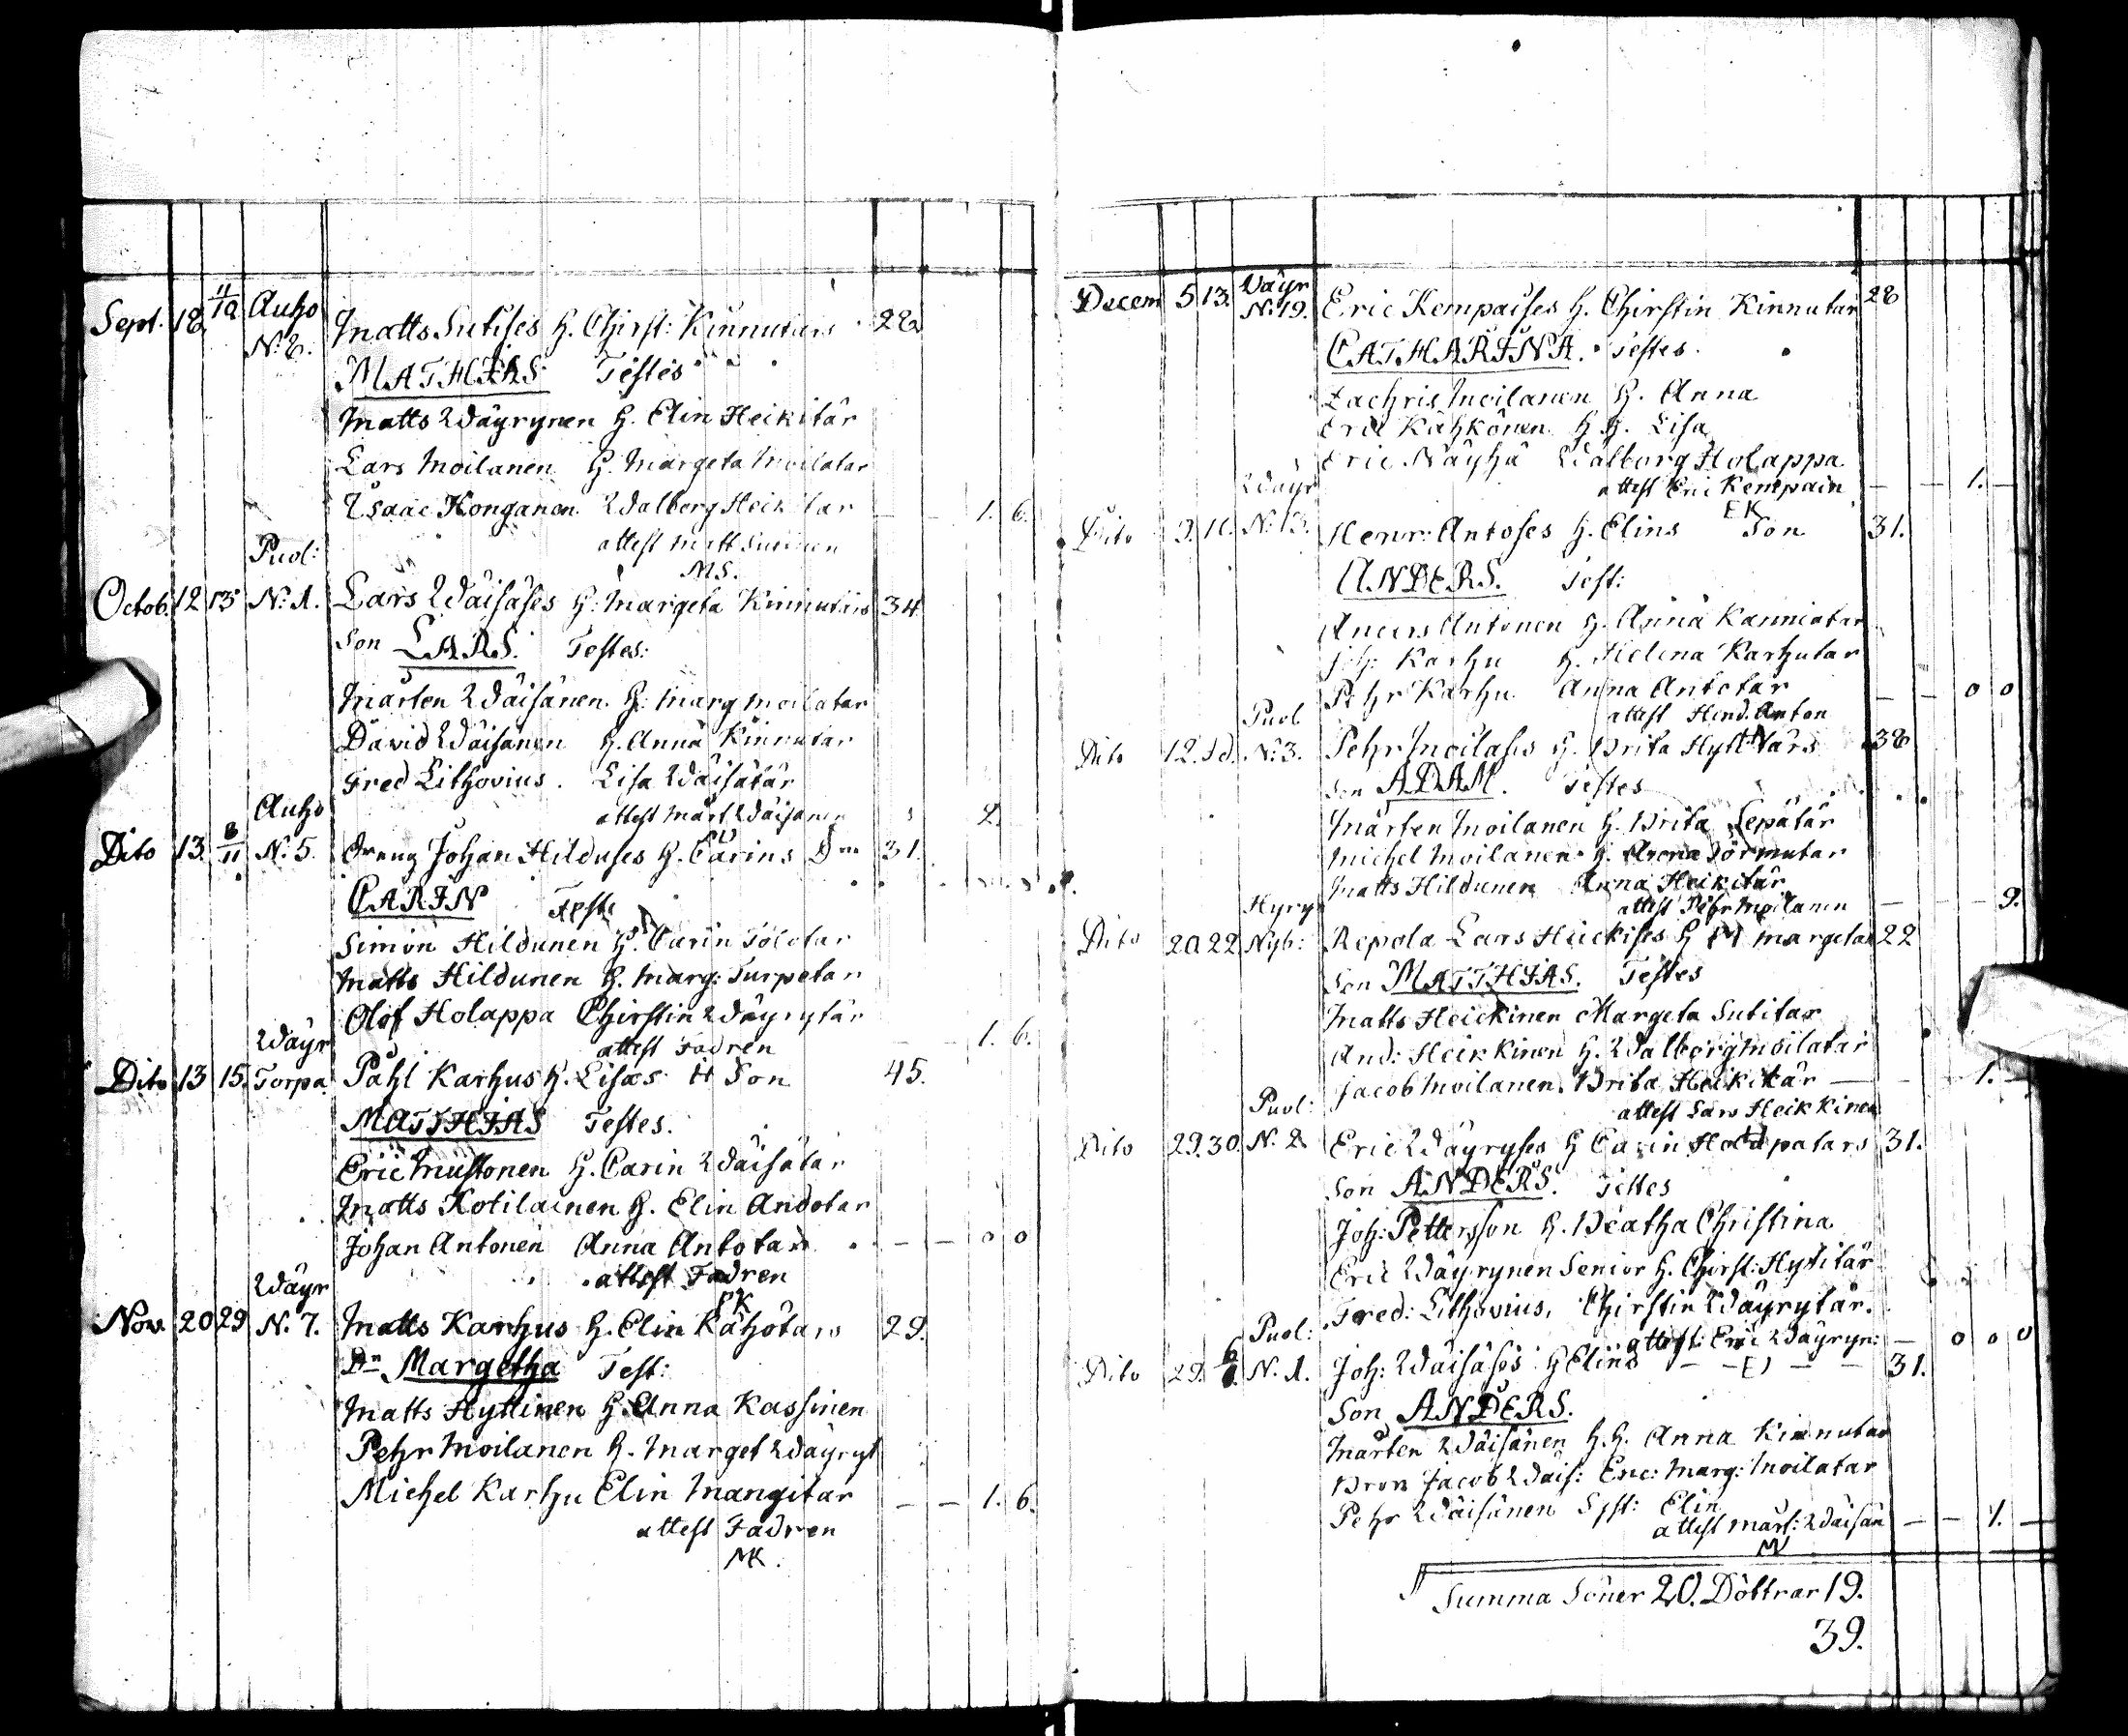 Sept. 18. 11/10 Auho N:2. Matts Sutises H. Chirst: Kinnutars 28.
MATHIAS Testes
Matts Wäyrynen H. Elin Heikitär
Lars Moilanen H. Margeta Moilatar
Isaac Konganen Walborg Heikitar 1. 6.
attest Matt Sutinen
MS.
Puol:
Octob. 12 13 N:1. Lars Wäisäses H: Margeta Kinnutars 34
Son LARS. Testes:
Mårten Wäisänen H: Marg Moilatar
David Wäisänen H. Anna Kinnutar
Fred Lithovius. Lisa Wäisätär
Auho attest Mårt Wäisänen 2.
Dito 13. 8/11 N:5. Dreng Johan Hilduses H. Carins Dr 31.
CARIN Teste
Simon Hildunen H. Carin Tolotar
Matts Hildunen H. Marg: Turpetar
Olof Holappa Chirstin Wäyrytär
Wäyr attest Fadren 1. 6.
Dito 13 15. Torpa Påhl Karhus H. Lisas Son 45.
MATTHIAS Testes.
Eric Mustonen H. Carin Wäisätär
Matts Kotilainen H. Elin Andotar
Johan Antonen Anna Antotar — — 0 0
attest Fadren
PK
Wäyr
Nov. 20 29 N. 7. Matts Karhus H. Elin Kähötars 29.
Dr Margetha Test:
Matts Hyttinen H. Anna Kassinen
Pehr Moilanen H. Marget Wäyryt
Michel Karhu Elin Mangitar — — 1. 6.
attest Fadren
MK.
Decem 5 13. Wäyr N:19. Eric Kempaises H. Chirstin Kinnutar 28
CATHARINA. Testes.
Zachris Moilanen H. Anna
Eric Kähkönen H H. Lisa
Eric Näyhä Walborg Holappa
attest Eric Kempain — — 1. —
EK
Wäyr
Dito 9. 11. N:13. Henr: Antoses H. Elins Son 31.
ANDERS. Test:
Anders Antonen H. Anna Kanniatar
Joh: Karhu H. Helena Karhutar
Pehr Karhu Anna Antotar — — 0 0
attest Hind. Anton
Puol
Dito 12. N:3. Pehr Moilases H. Brita Hyttitärs 38
Son ADAM. Testes
Mårten Moilanen H. Brita Sepätär
Michel Moilanen H. Anna Törmutar
Matts Hildunen Anna Heikitär
attest Pehr Moilanen — — — 9.
Hyry
Dito 20 22. Nyb: Repola Lars Heickises H Margetas 22
Son MATTHIAS. Testes
Matts Heickinen Margeta Sutitar
And: Heikkinen H. Walborg Moilatar
Jacob Moilanen. Brita Heikitär — 1. —
attest Lars Heikkinen
Puol:
Dito 29. 30. N. 2 Eric Wäyryses H Carin Holapatars 31.
Son ANDERS. Testes
Joh: Pettersson H. Beatha Christina
Eric Wäyrynen Senior H. Chirst: Hyttitär
Fred: Lithovius, Chirstin Wäyrytär.
attest: Eric Wäyryn: — 0 0 0
Puol:
Dito 29. N. 1. Joh: Wäisäses H Elins 31.
Son ANDERS.
Mårten Wäisänen H. H. Anna Kinnutar
Bron Jacob Wäis: Enc: Marg: Moilatar
Pehr Wäisänen Syst: Elin
attest Mårt: Wäisän — — 1. —
Summa Söner 20. Döttrar 19.
39.